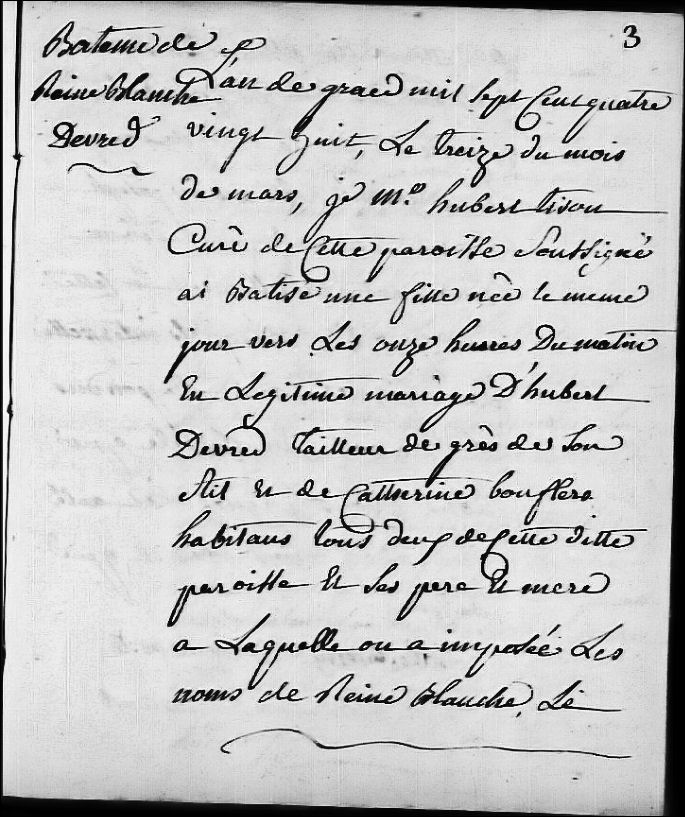 3
Bateme de
Reine Blanche
Devred
L'an de grace mil sept Cent quatre
vingt huit, Le treize du mois
de mars, je Me. hubert tison
Curé de Cette paroisse soussigné
ai Batisé une fille née le meme
jour vers Les onze heures Du matin
En Legitime mariage D'hubert
Devred tailleur de grès de son
stil Et de Catherine bouflers
habitans tous deux de Cette ditte
paroisse Et ses pere Et mere
a Laquelle on a imposée Les
noms de Reine Blanche, Le